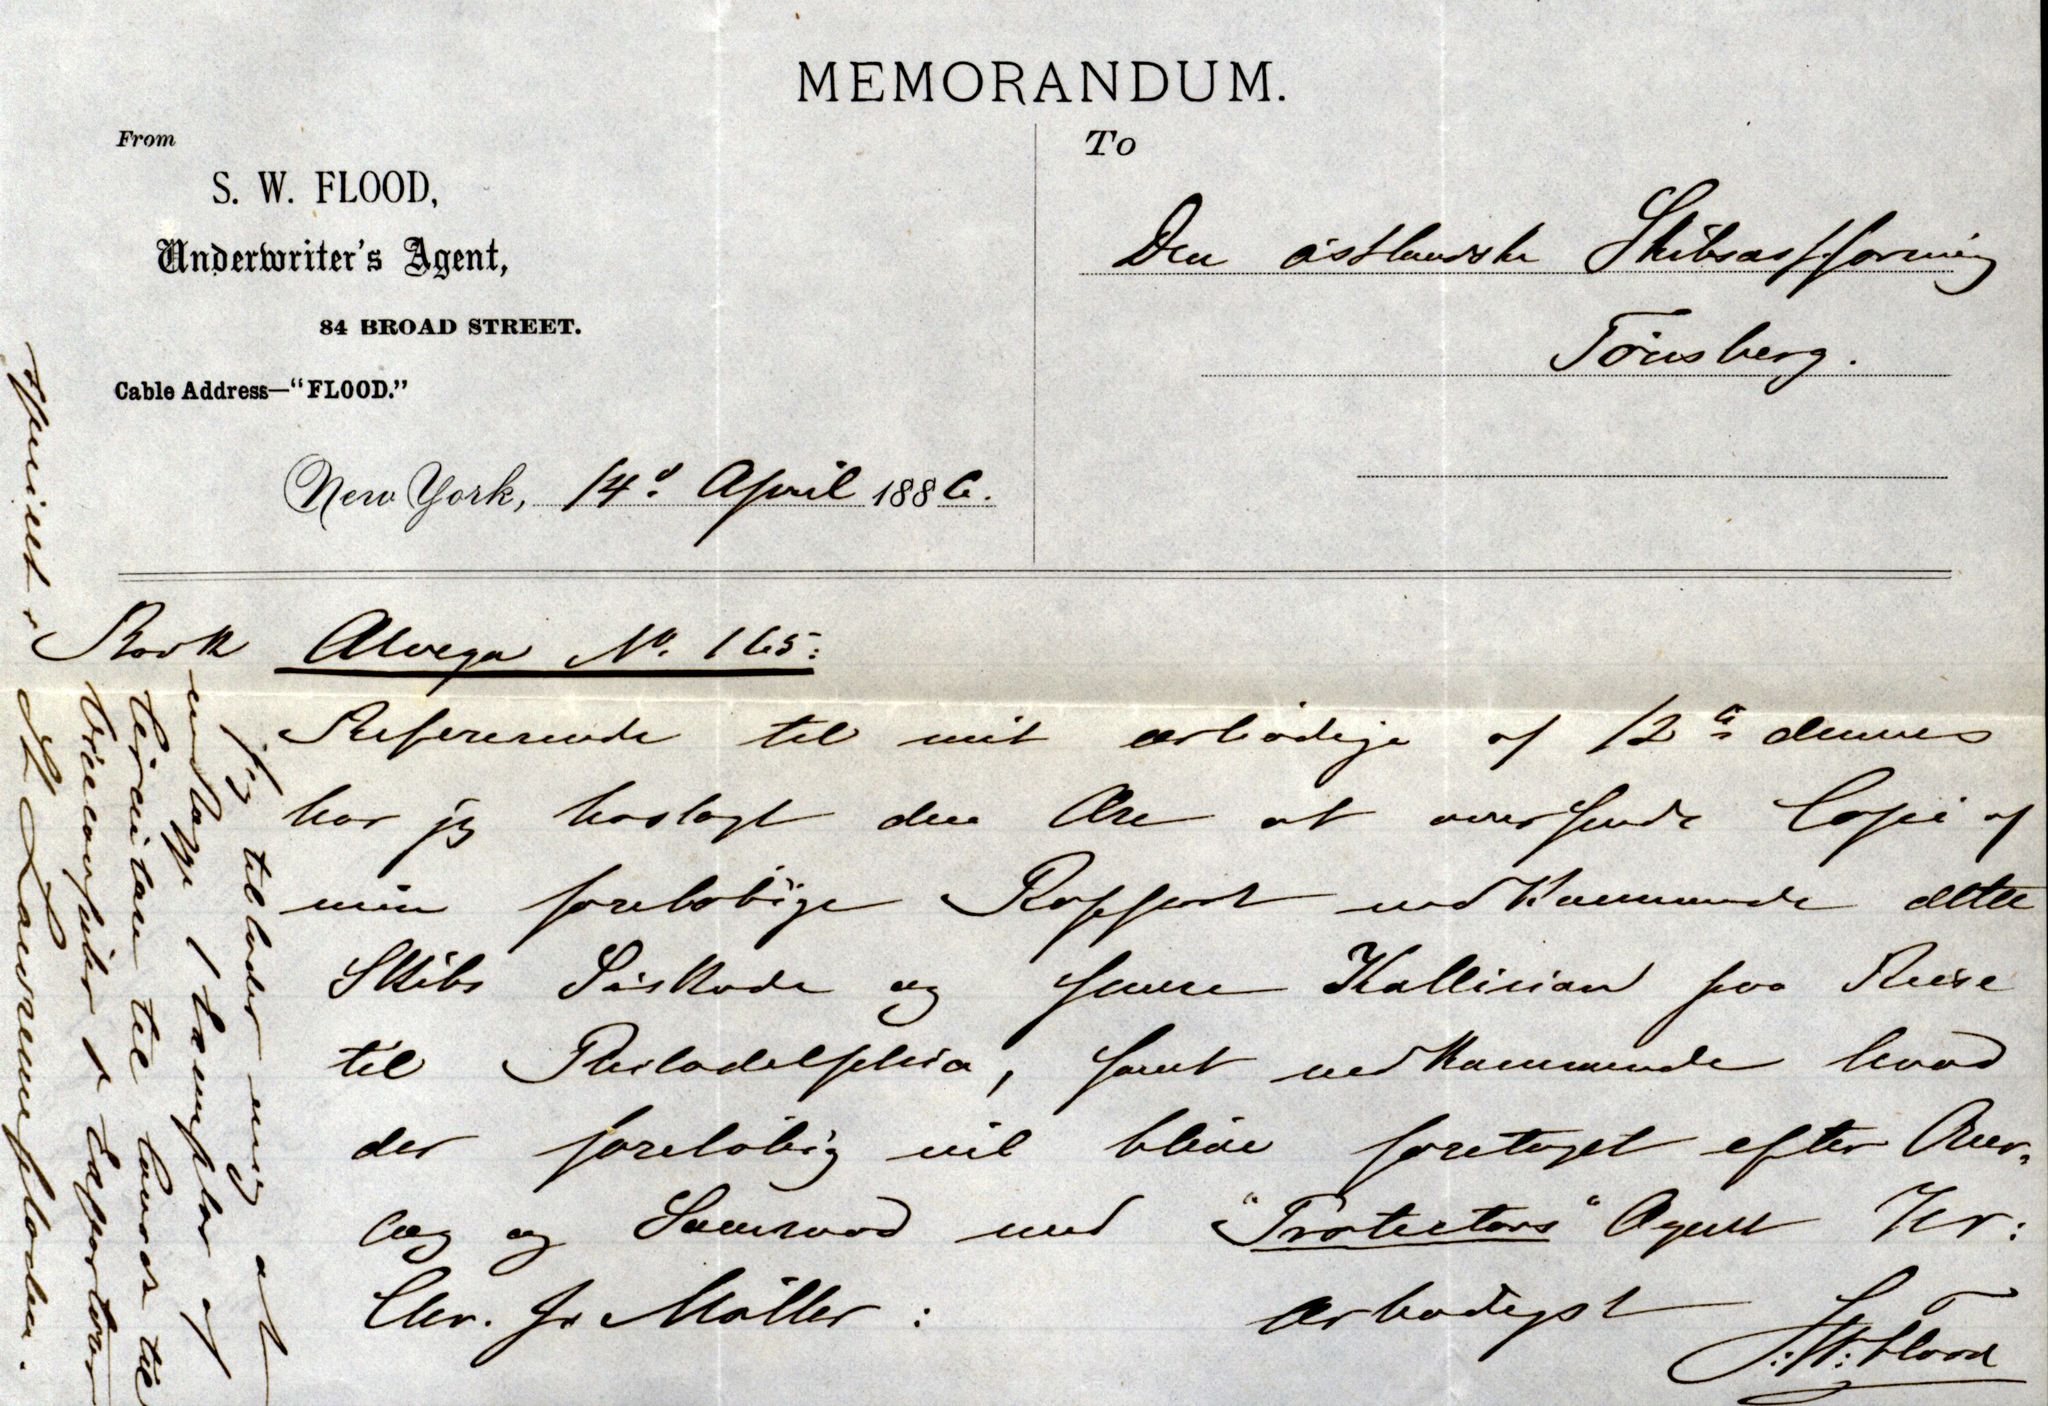 MEMORANDUM.
From
S. W. FLOOD,
Underwriter's Agent,
84 BROAD STREET.
Cable Address—"FLOOD."
New York, 14d April 1886.
To
Den östlandske Skibsassforening
Tönsberg.
Bark Alvega No. 165:
Refererende til mit ærbödige af 12te dennes
har jeg hoslagt den Ære at oversende Copi af
min forelöbige Rapport vedkommende dette
Skibs Söskade og senere Kollision paa Reise
til Philadelphia, samt vedkommende hvad
der forelöbig vil blive foretaget efter Over-
læg og Samraad med "Protectors" Agent Hr:
Chr. Jr Möller: ærbödigst
S: W: Flood
jeg tillader mig at
vedlægge 1 Exemplar af
Circulære til Lauds til
og Exportører
St Lawrencefloden.